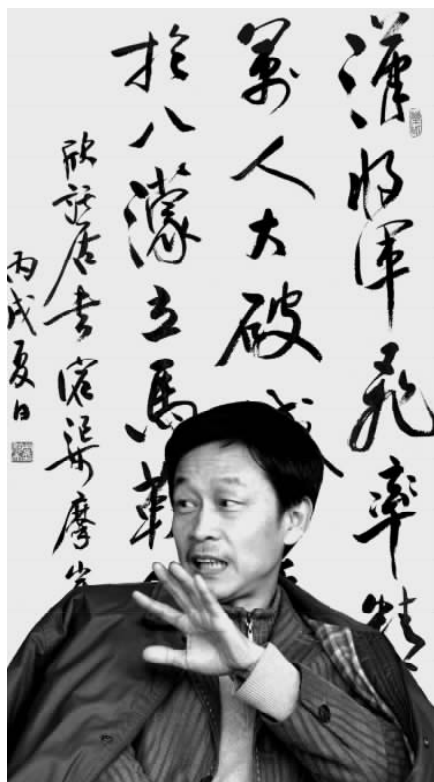 漢将軍飛率精
萬人大破
於八濛立馬勒
欣託居書宕渠摩
丙戌夏日